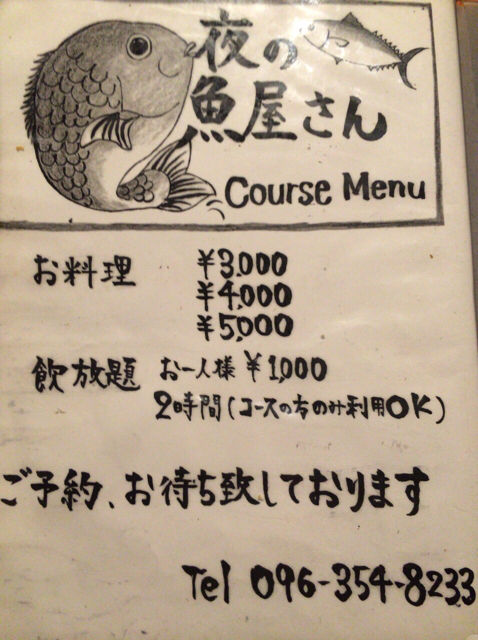 夜の
魚屋さん
Course Menu
お料理 ¥3,000
¥4,000
¥5,000
飲放題 お一人様 ¥1,000
2時間(コースの方のみ利用OK)
ご予約、お待ち致しております
Tel 096-354-8233